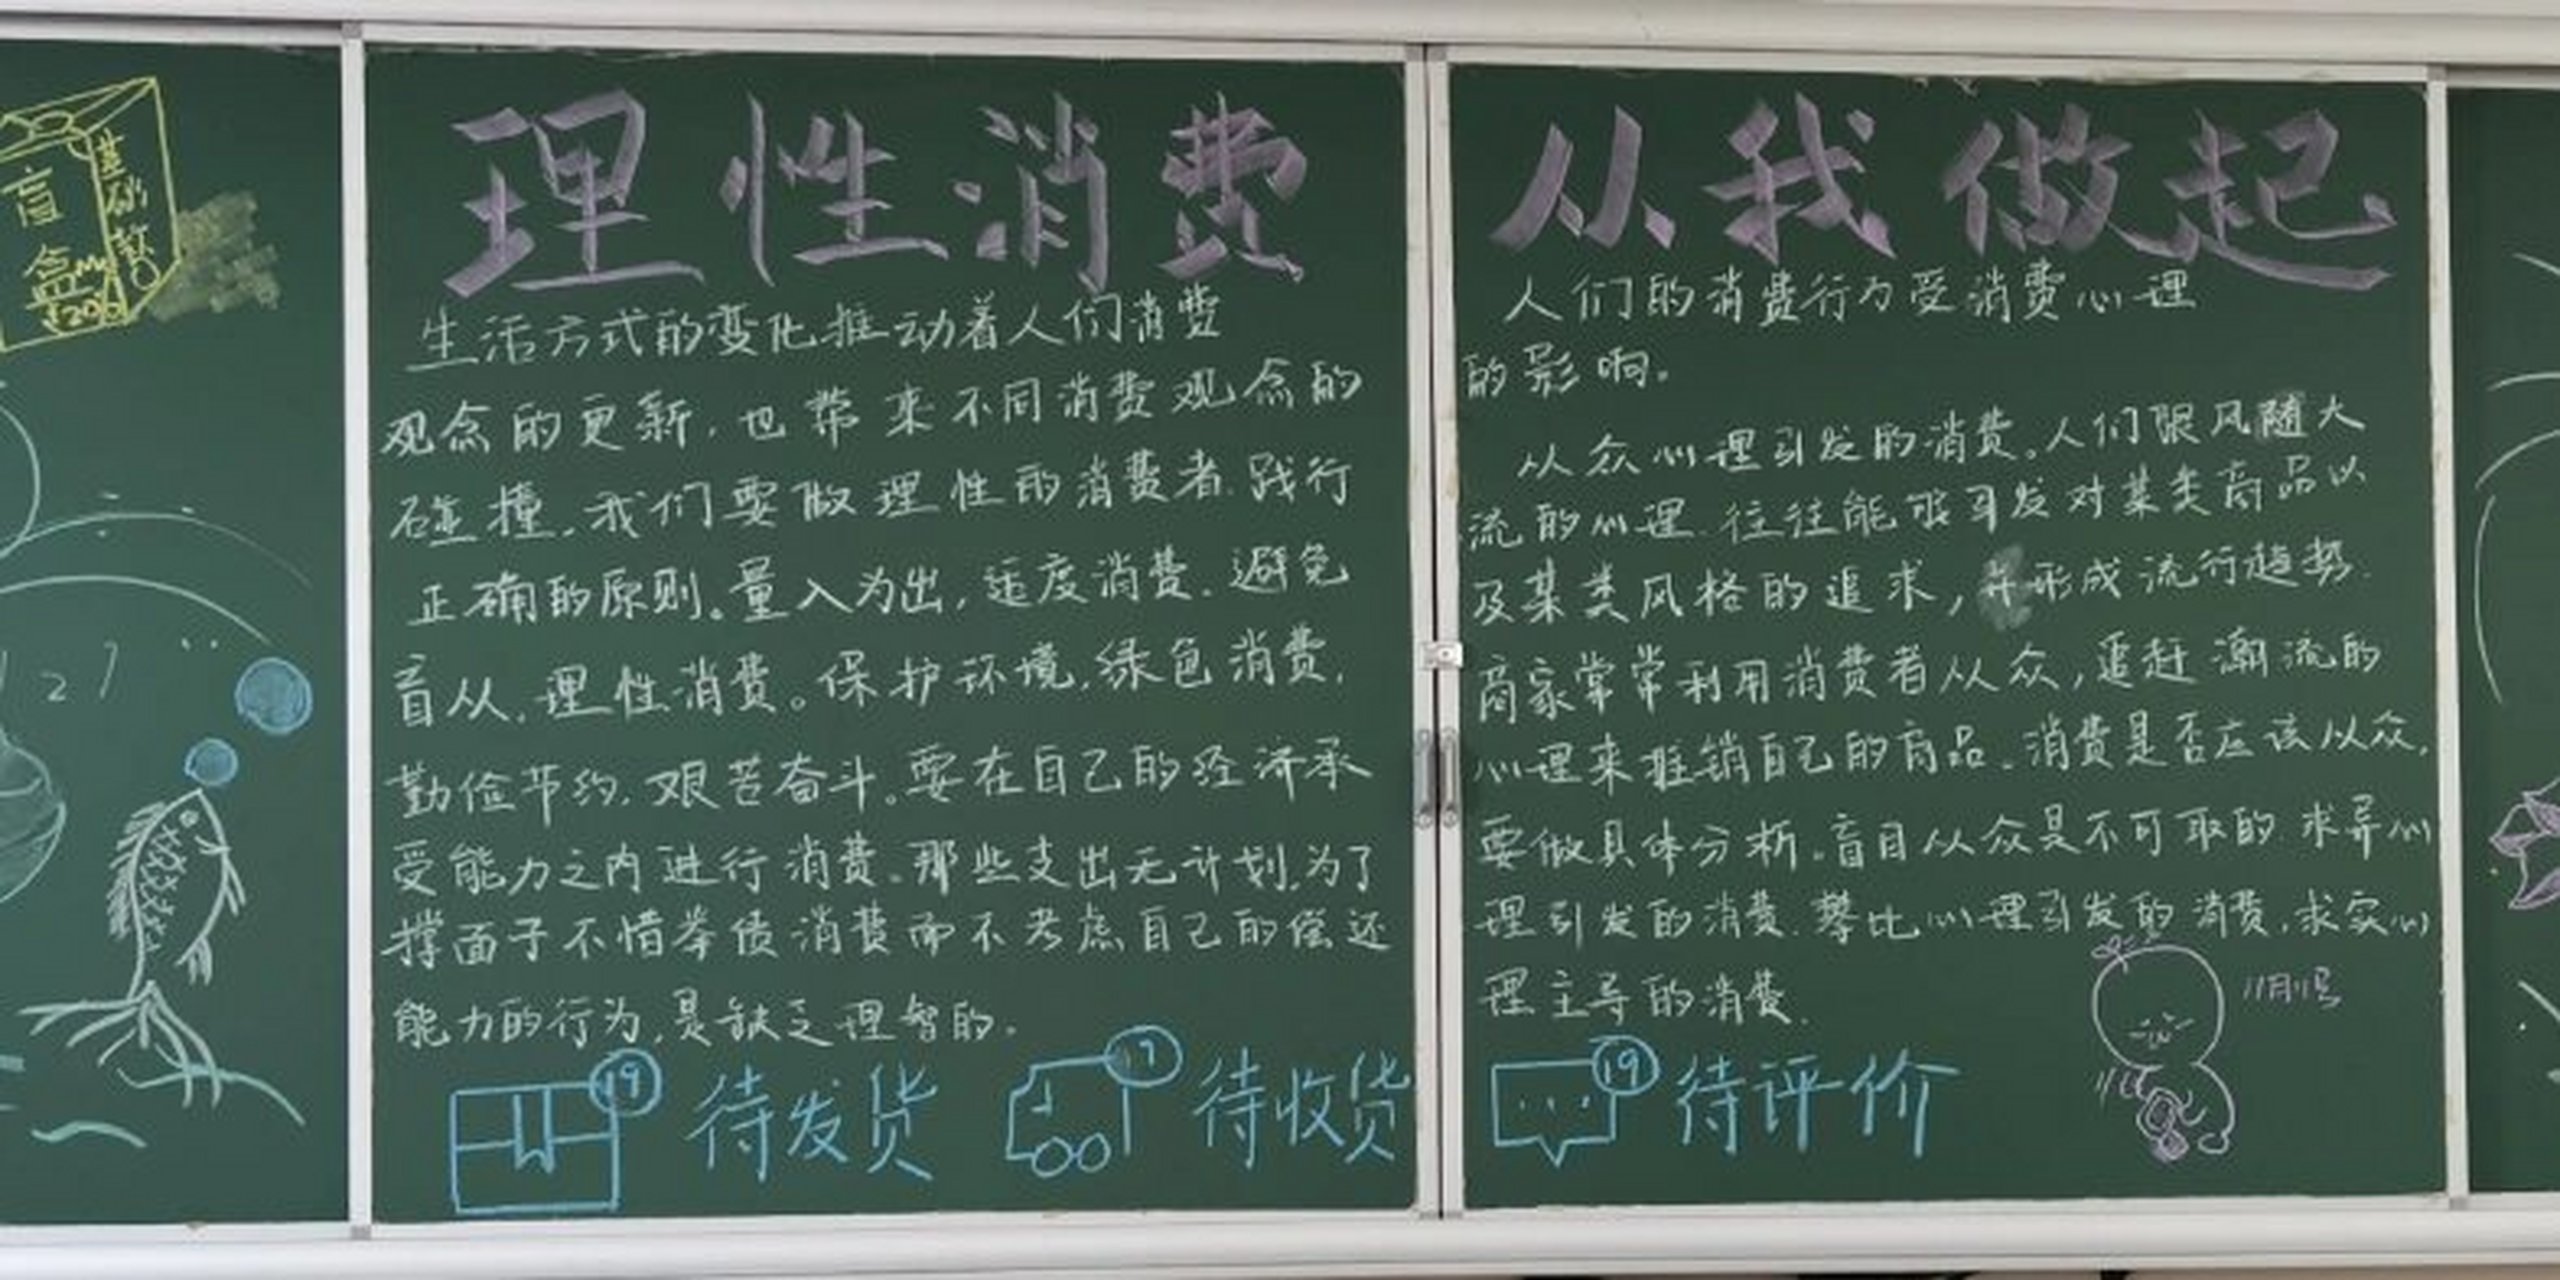 盲盒
基础款
理性消费
生活方式的变化推动着人们消费
观念的更新,也带来不同消费观念的
碰撞,我们要做理性的消费者.践行
正确的原则。量入为出,适度消费.避免
盲从,理性消费。保护环境,绿色消费,
勤俭节约,艰苦奋斗。要在自己的经济承
受能力之内进行消费。那些支出无计划,为了
撑面子不惜举债消费而不考虑自己的偿还
能力的行为,是缺乏理智的。
19 待发货 7 待收货
从我做起
人们的消费行为受消费心理
的影响。
从众心理引发的消费。人们跟风随大
流的心理.往往能够引发对某类商品以
及某类风格的追求,并形成流行趋势.
商家常常利用消费者从众,追赶潮流的
心理来推销自己的商品。消费是否应该从众,
要做具体分析。盲目从众是不可取的.求异心
理引发的消费.攀比心理引发的消费,求实心
理主导的消费.
11月1号
19 待评价